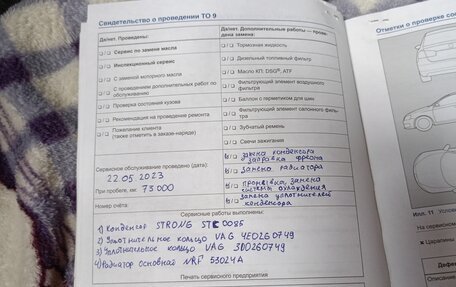 Свидетельство о проведении ТО 9
Да/нет. Проведены:
Сервис по замене масла
Инспекционный сервис
С заменой моторного масла
С проведением дополнительных работ по обслуживанию
Проверка состояния кузова
Рекомендация на проведение ремонта
Пожелание клиента
(также отметить в заказе-наряде)
Сервисное обслуживание проведено (дата):
22.05.2023
При пробеге, км: 75000
Номер счёта:
Да/нет. Дополнительные работы – прове-
дена замена:
Тормозная жидкость
Дизельный топливный фильтр
Масло КП: DSG®, ATF
Фильтрующий элемент воздушного
фильтра
Баллон с герметиком для шин
Фильтрующий элемент салонного филь-
тра
Зубчатый ремень
Свечи зажигания
замена конденсора
заправка фреона
замена радиатора
промывка, замена
системы охлаждения
замена уплотнителей
конденсора
Сервисные работы выполнены:
1) Конденсор STRONG STC0085
2) Уплотнительное кольцо VAG 4E0260749
3) Уплотнительное кольцо VAG 3D0260749
4) Радиатор основной NRF 53024A
Печать сервисного предприятия
Отметки о проверке сос
Илл. 11
На сервисном
Царапины
Дефе